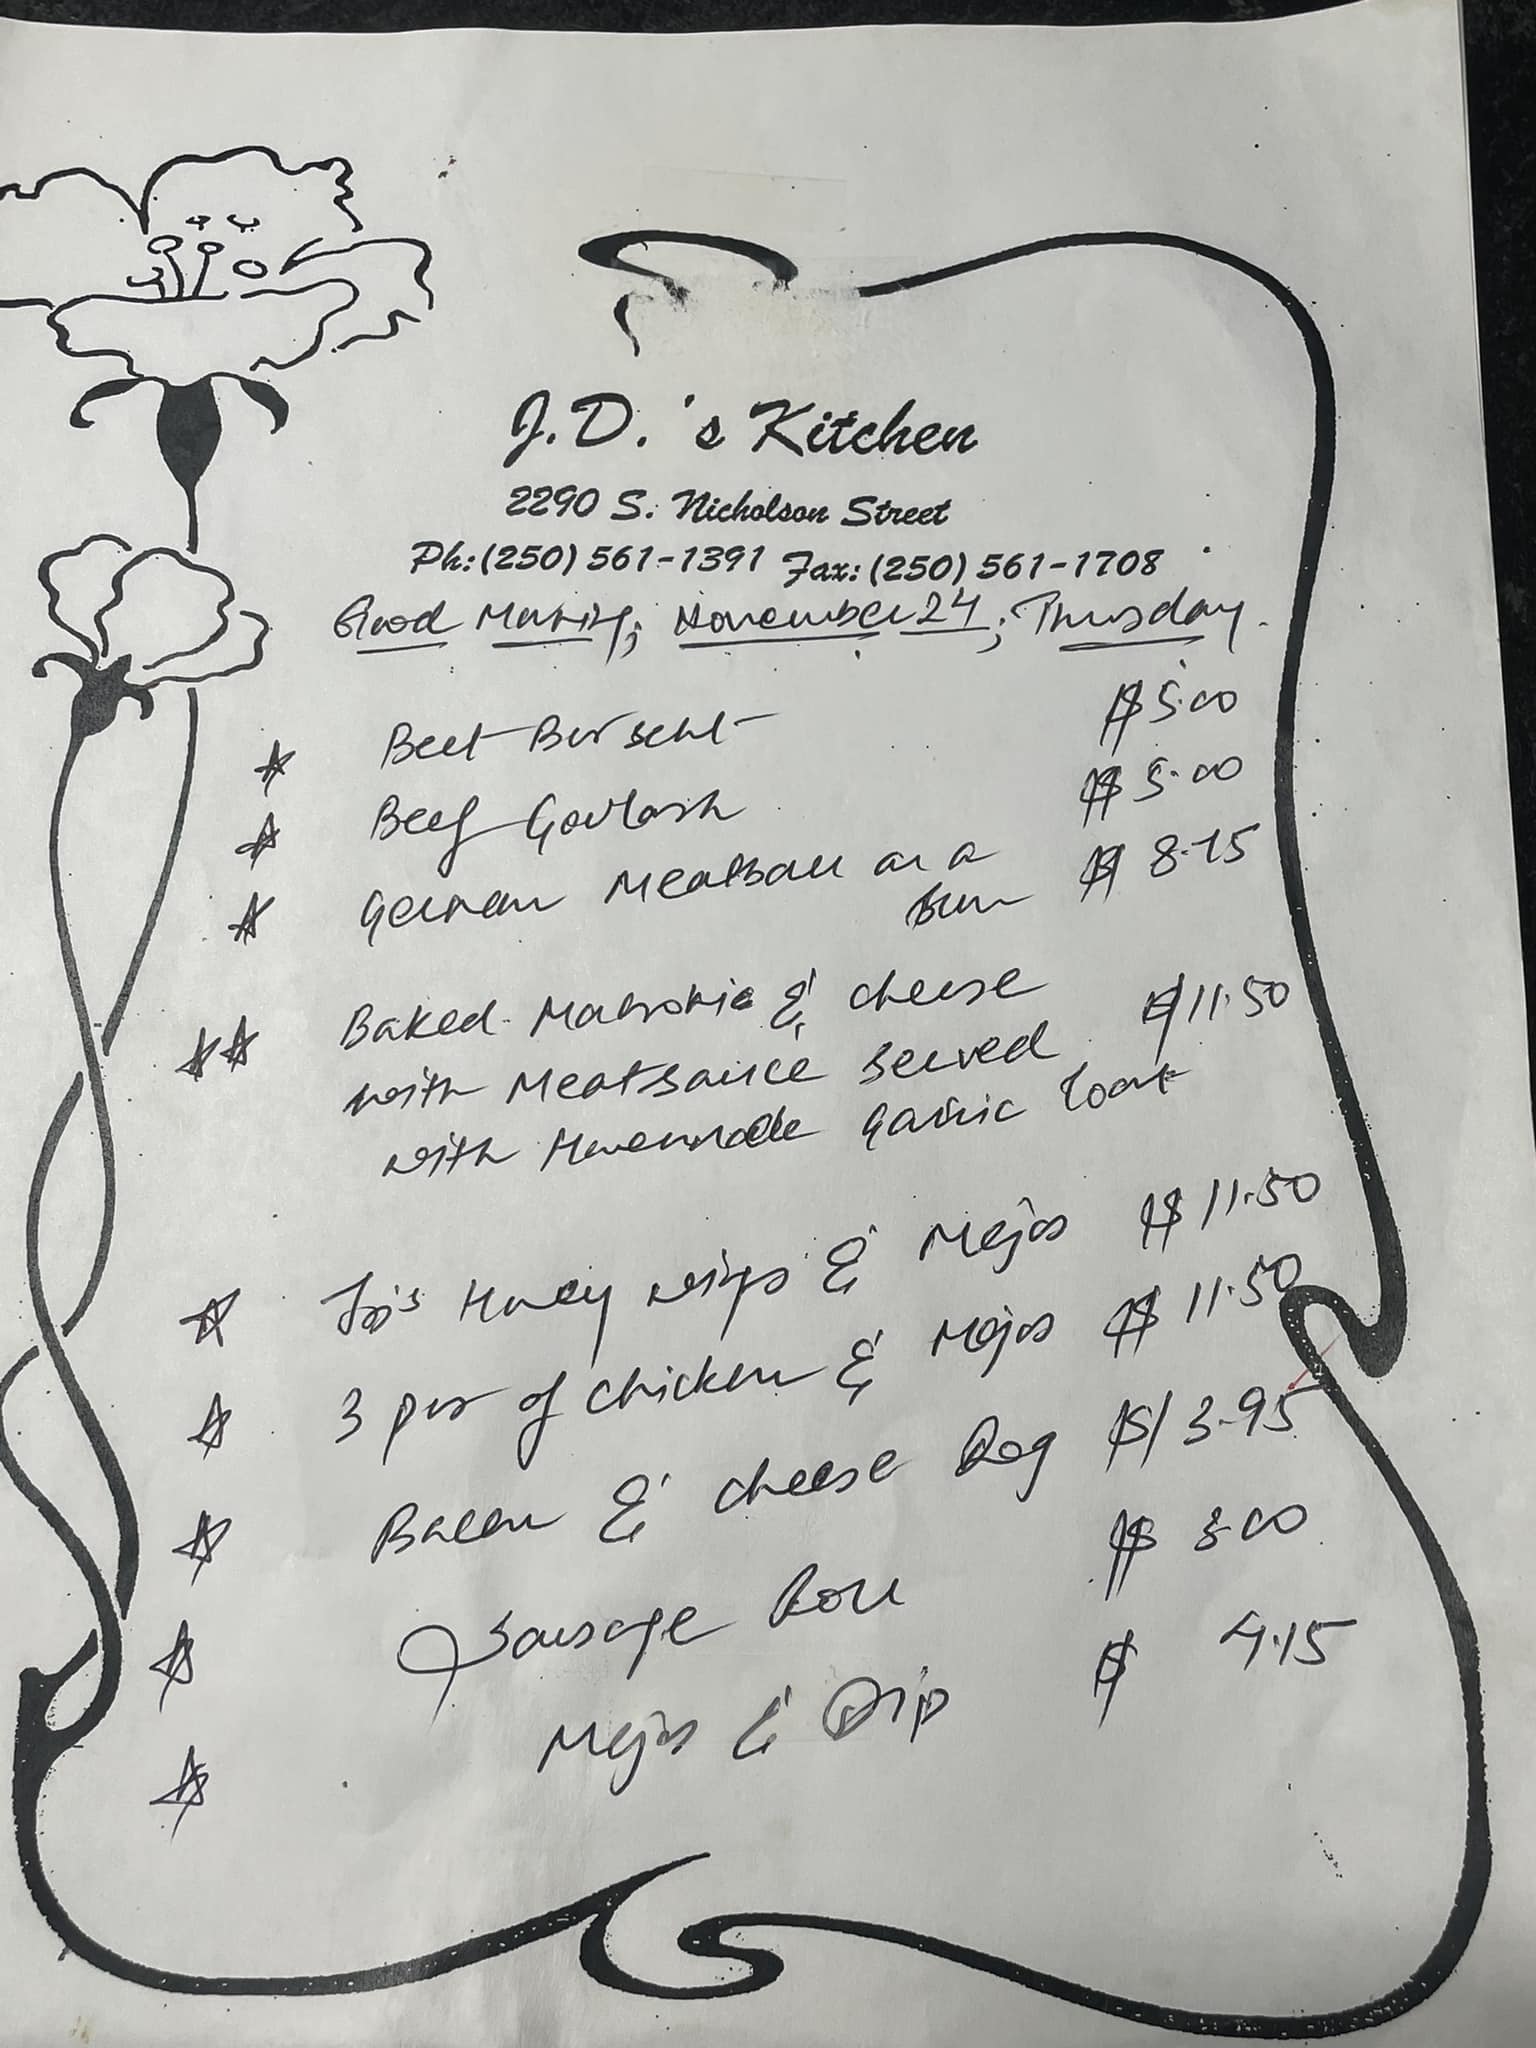 J.D.'s Kitchen
2290 S. Nicholson Street
Ph: (250) 561-1391 Fax: (250) 561-1708
Good Morning, November 24, Thursday.
Beet Borscht $5.00
Beef Goulash $5.00
German Meatball on a $8.75
bun
Baked Macronie & cheese $11.50
with Meatsauce served
with Homemade Garlic Toast
Honey wings & Mojos $11.50
3 pcs of chicken & Mojos $11.50
Bacon & cheese Dog $13.95
Sausage Roll $3.00
Mojos & Dip $4.75